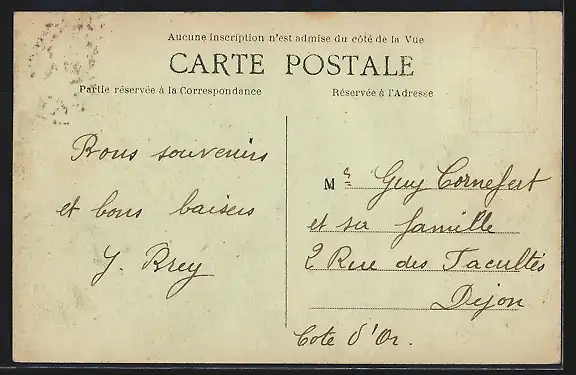 Aucune inscription n'est admise du côté de la Vue
CARTE POSTALE
Partie réservée à la Correspondance
Réservée à l'Adresse
Bons souvenirs
et bons baisers
J. Brey
Mr Guy Cornefert
et sa famille
2 Rue des Facultés
Dijon
Cote d'Or.